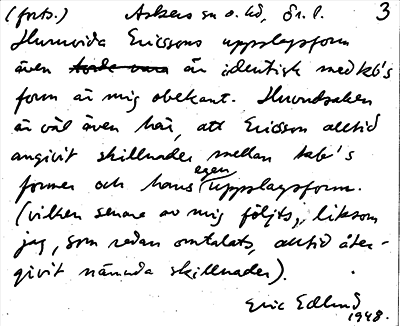 (forts.) Askers sn o. hd, Ör. l. 3
Huruvida Ericssons uppslagsform
även torde vara är identisk med kb's
form är mig obekant. Huvudsaken
är väl även här, att Ericsson alltid
angivit skillnader mellan kb's
former och hans egen uppslagsform.
(vilken senare av mig följts, liksom
jag, som redan omtalats, alltid åter-
givit nämnda skillnader).
Eric Edlund
1948.